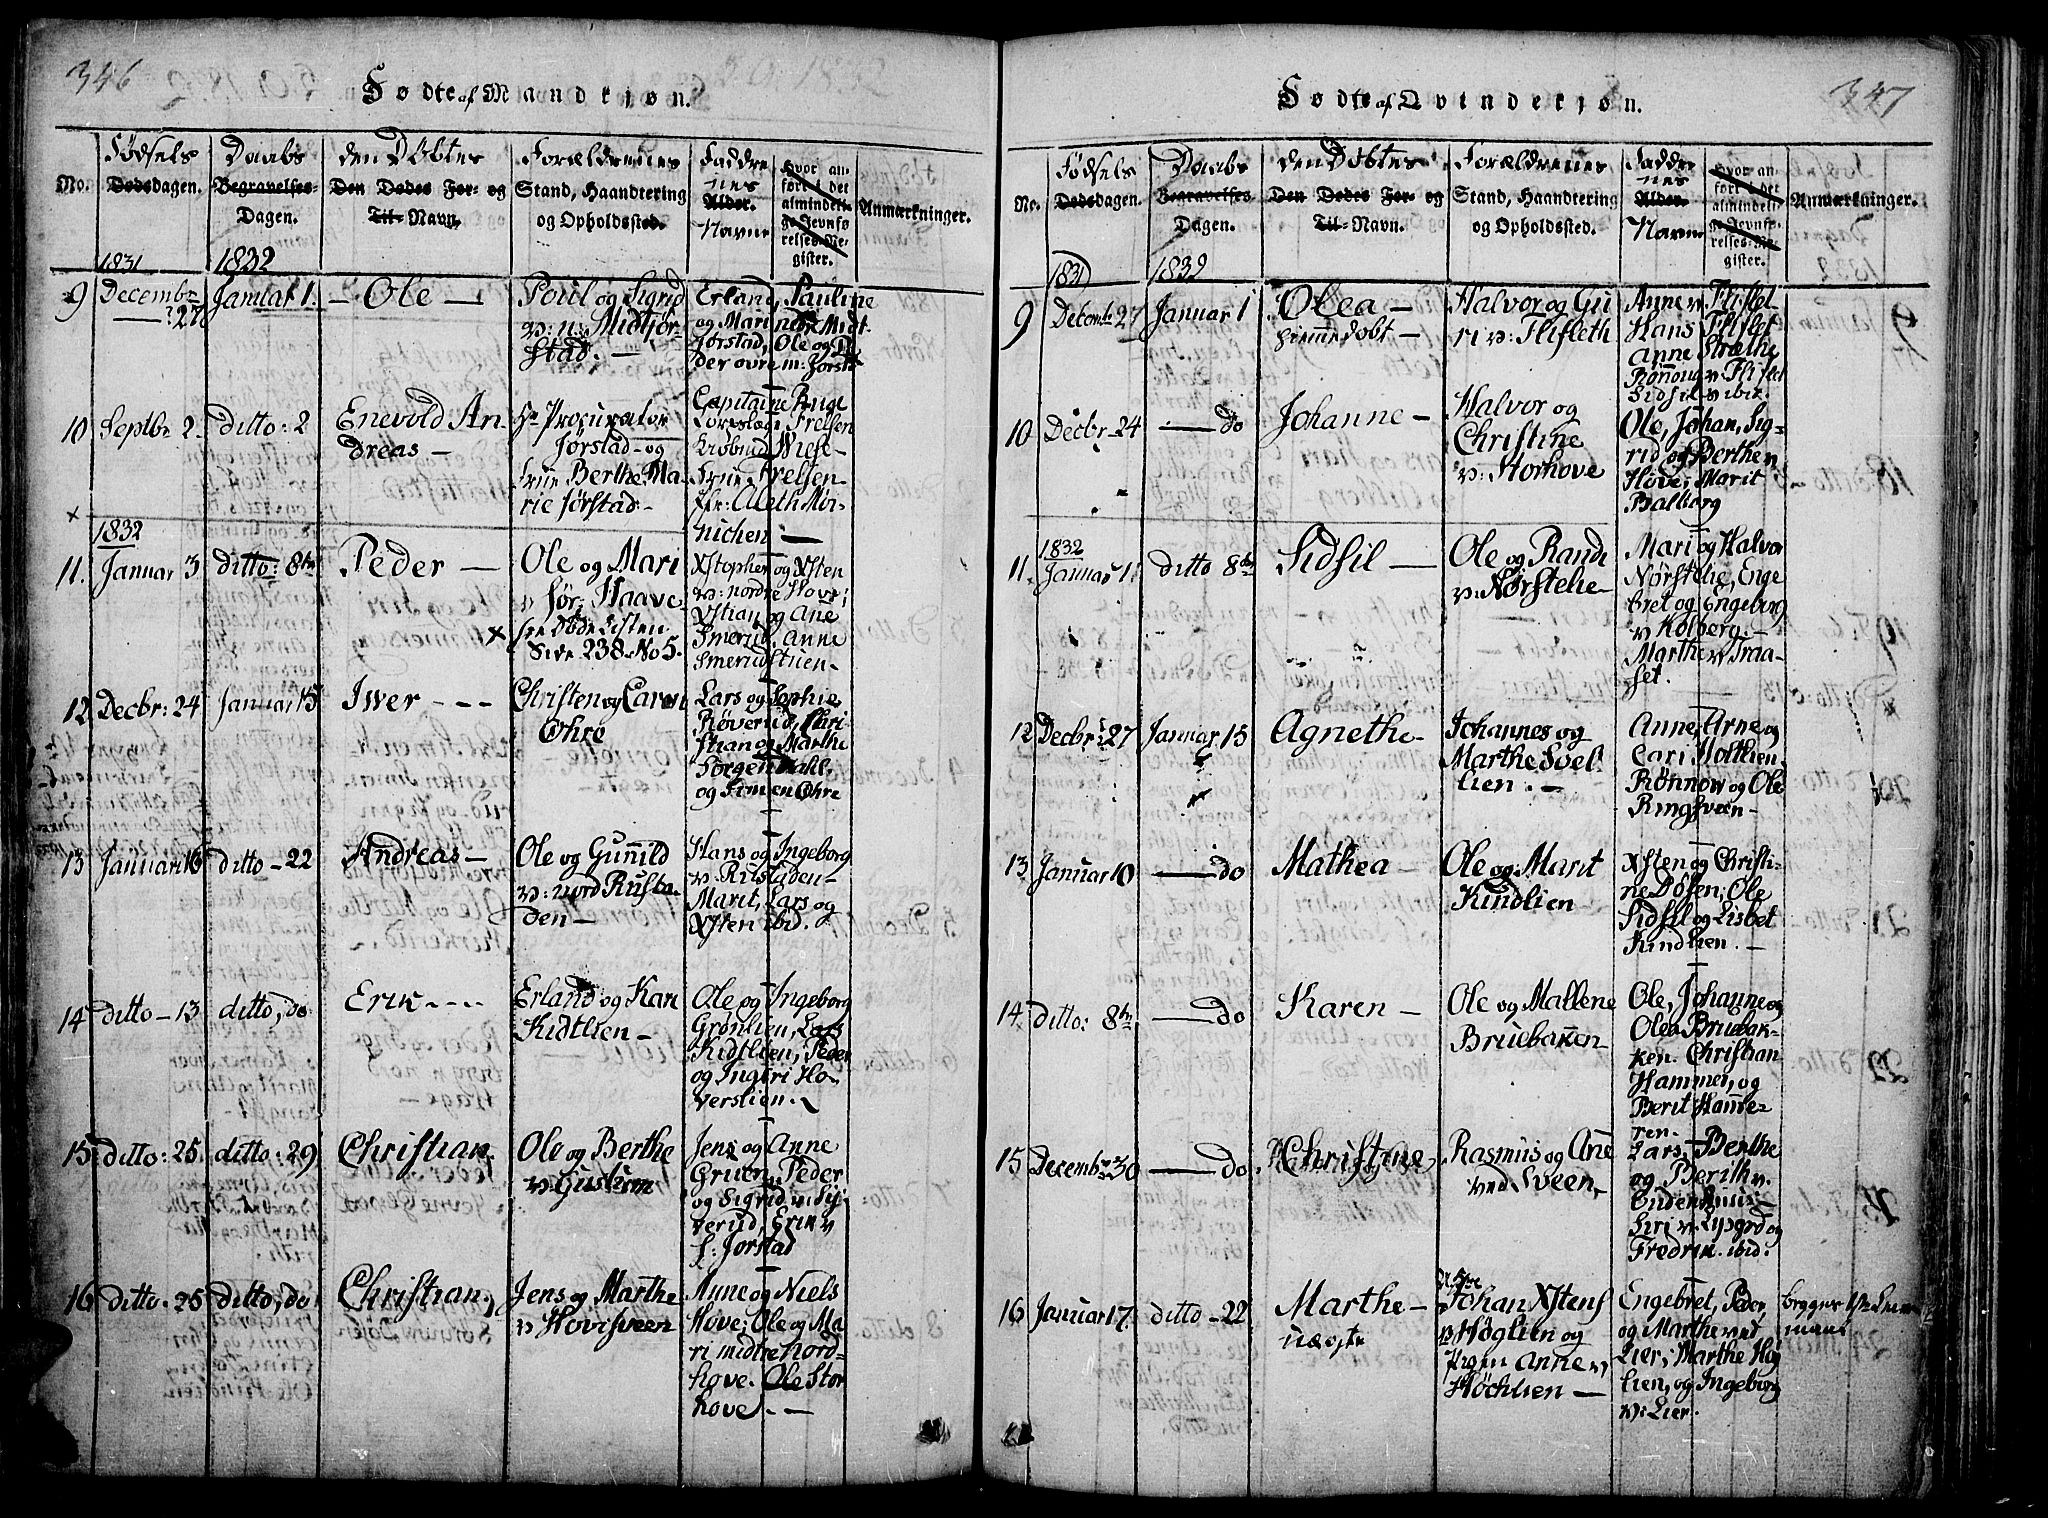 346
Födte af Mandkjøn.
Fødsels
Daabs
den Døbtes
Forældrenes
Faddre
nes
No.
Dødsdagen.
Begravelses-
Dagen.
Den Dødes For- og
Til-Navn.
Stand, Haandtering
og Opholdssted.
Alder.
Navne
Hvor an-
ført i det
almindeli-
ge Jevnfø-
relses-Re-
gister.
Anmærkninger.
1831
1832
9 Decembr 27 Januar 1. – Ole –
Poul og Sigrid
v: n: Midtjør-
stad. –
Erland, Pauline
og Marie
Jørstad, Ole og
der øvre m: Jørstad
10 Septbr 2. ditto: 2 Enevold An
dreas –
Hr Procurator
Jørstad – og
Frue Berthe Ma-
rie Jørstad –
Capitaine Ruge
Wiese –
Frue
Jfr: Aleth Mør-
nichen –
1832
11. Januar 3 ditto: 8de Peder –
Ole og Mari
v Sør: Haave
see DødeListen
Side 238 No 5.
Xstopher og Xsten
v: nordre Hove;
Xstian og Ane
Smerud, Anne
Smerudstuen –
12 Decbr: 24 Januar 15 Iwer - - -
Christen og Caren
Ohre
Lars og Sophie
Røverud, Chri-
stian og Marthe
Dahl
og Simen Ohre
13 Januar 16 ditto – 22 Andreas –
Ole og Gunild
v: nord Rusta-
den –
Hans og Ingeborg
v: Rustaden –
Marit, Lars og
Xsten ibid.
14 ditto – 13 ditto, do Erik - - -
Erland og Kari
Kidtlien –
Ole og Ingeborg
Grønlien, Lars
Kidtlien, Peder
og Ingeri Ho-
verslien.
15 ditto: 25 ditto: 29 Christian.
Ole og Berthe
v: Gustum
Jens og Anne
Gruen, Peder
og Sigrid v
verud, Erik v
s: Jørstad
16 ditto: 25 ditto, do Christian,
Jens og Marthe
v Hovisveen
Anne og Niels
Hove; Ole og Ma-
ri midtre Nord-
hove. Ole Stor
hove – –
347
Födte af Qvindekjøn.
Fødsels
Daabs
den Døbtes
Forældrenes
Faddre
nes
No.
Dødsdagen.
Begravelses
Dagen.
Den Dødes For- og
Til-Navn.
Stand, Haandtering
og Opholdssted.
Alder.
Navne
Hvor an-
ført i det
almindeli-
ge Jevnfø-
relses-Re-
gister.
Anmærkninger.
1831
1832
9 Decembr 27 Januar 1 Olea –
hiemmedøbt –
Halvor og Gu
ri v: Flifleth
Anne v: Fliflet
Hans Fliflet
Anne Stræthe
Rønnoug v: Fliflet
Sidsil v ibid.
10 Decbr 24 – do Johanne –
Halvor og
Christine
v: Storhove
Ole, Johan, Sig-
rid og Berthe v
Hove; Marit
Balberg
1832
11. Januar 1. ditto 8de Sidsil –
Ole og Randi
v: Nørstelie –
Mari og Halvor
Nørstelie, Enge
bret og Engeborg
v Kolberg –
Marthe v Traa-
set.
12 Decbr: 27 Januar 15 Agnethe –
Johannes og
Marthe Svel-
lien. –
Anne, Arne og
Cari Holtlien
Rønnow og Ole
Ringsveen –
13 Januar 10 – do Mathea –
Ole og Marit
Kindlien
Xsten og Christi-
ne Døsen; Ole
Sidsel og Lisbet
Kindlien. –
14 ditto: 8de – do Karen –
Ole og Mallene
Bruebaken –
Ole, Johanne og
Olea Bruebak-
ken. Christian
Hammer, og
Berit Hamme-
ren –
15 Decembr 30 – do Christine
Rasmus og Ane
ved Sveen,
Lars, Berthe
og Berith v.
Siri v. Lysgrd og
Fredrik ibid.
16 Januar 17. ditto – 22 Marthe –
uægte
Johan Xstens
v Høglien og
Pigen Anne v
Höchlien –
Engebret, Peder
og Marthe ved
Lier; Marthe Hög
lien, og Ingeborg
v: Lier.
begges 1ste Leier
maal